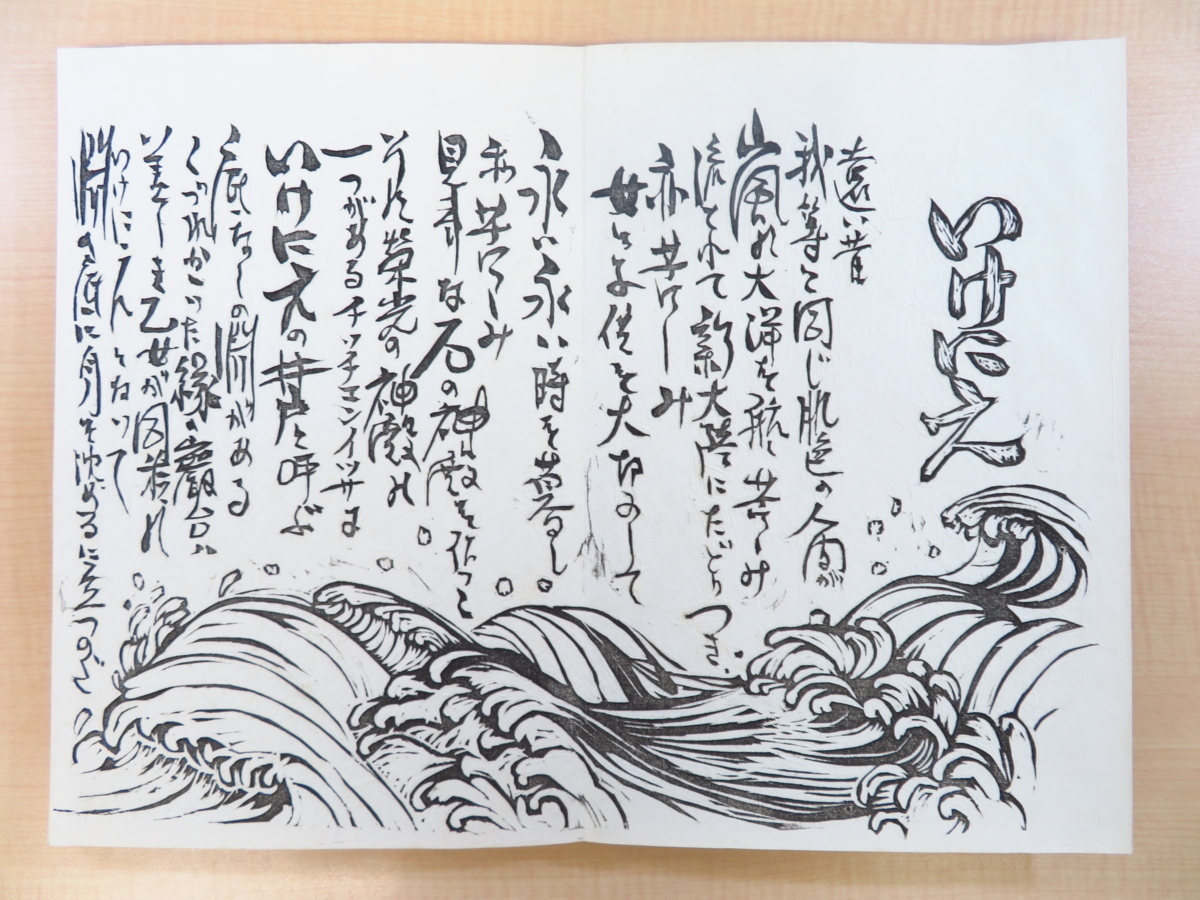 いけにえ
遠い昔
我等と同じ肌色の人間が
嵐の大海を航て苦しみ
流されて新大陸にたどりつき
亦苦しみ
女は子供を大きおして
永い永い時を暮し
亦苦しみ
見事な石の神殿を作って
その栄光の神殿の
一つがあるチッチェンイッサは
いけにえの井戸と呼ぶ
底なしの淵がある
くづれかゝった緑の巌台は
美しき乙女が
いけにえとなって
淵の底に身を沈めるに立つのだ